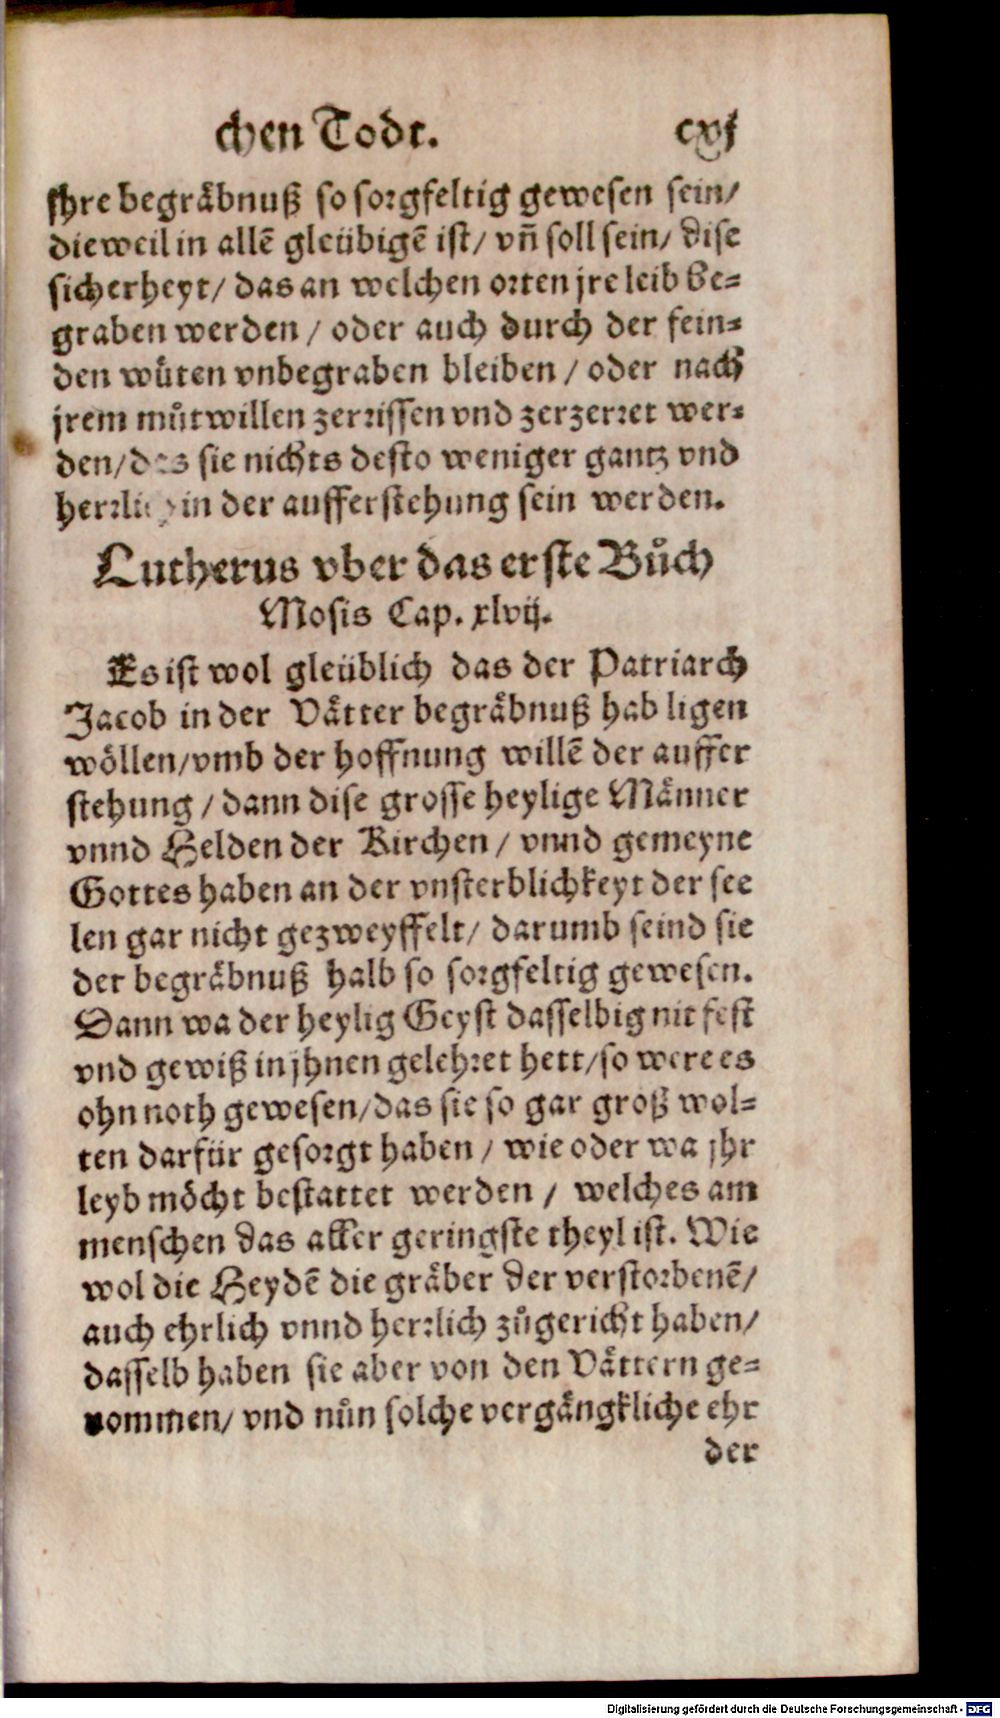 chen Todt. cxvj
jhre begräbnuß so sorgfeltig gewesen sein/
dieweil in allẽ gleübigẽ ist/ vñ soll sein/ dise
sicherheyt/ das an welchen orten jre leib be=
graben werden / oder auch durch der fein=
den wüten vnbegraben bleiben / oder nach
jrem můtwillen zerrissen vnd zerzerret wer=
den/ das sie nichts desto weniger gantz vnd
herrlich in der aufferstehung sein werden.
Lutherus vber das erste Bůch
Mosis Cap. xlvij.
Es ist wol gleüblich das der Patriarch
Jacob in der Vätter begräbnuß hab ligen
wöllen/ vmb der hoffnung willẽ der auffer
stehung / dann dise grosse heylige Männer
vnnd Helden der Kirchen / vnnd gemeyne
Gottes haben an der vnsterblichkeyt der see
len gar nicht gezweyffelt/ darumb seind sie
der begräbnuß halb so sorgfeltig gewesen.
Dann wa der heylig Geyst dasselbig nit fest
vnd gewiß in jhnen gelehret hett/ so were es
ohn noth gewesen/ das sie so gar groß wol=
ten darfür gesorgt haben / wie oder wa jhr
leyb möcht bestattet werden / welches am
menschen das aller geringste theyl ist. Wie
wol die Heydẽ die gräber der verstorbenẽ/
auch ehrlich vnnd herrlich zůgericht haben/
dasselb haben sie aber von den Vättern ge=
nommen/ vnd nůn solche vergängkliche ehr
der
Digitalisierung gefördert durch die Deutsche Forschungsgemeinschaft - DFG